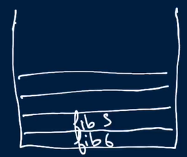 fib 5
fib 6